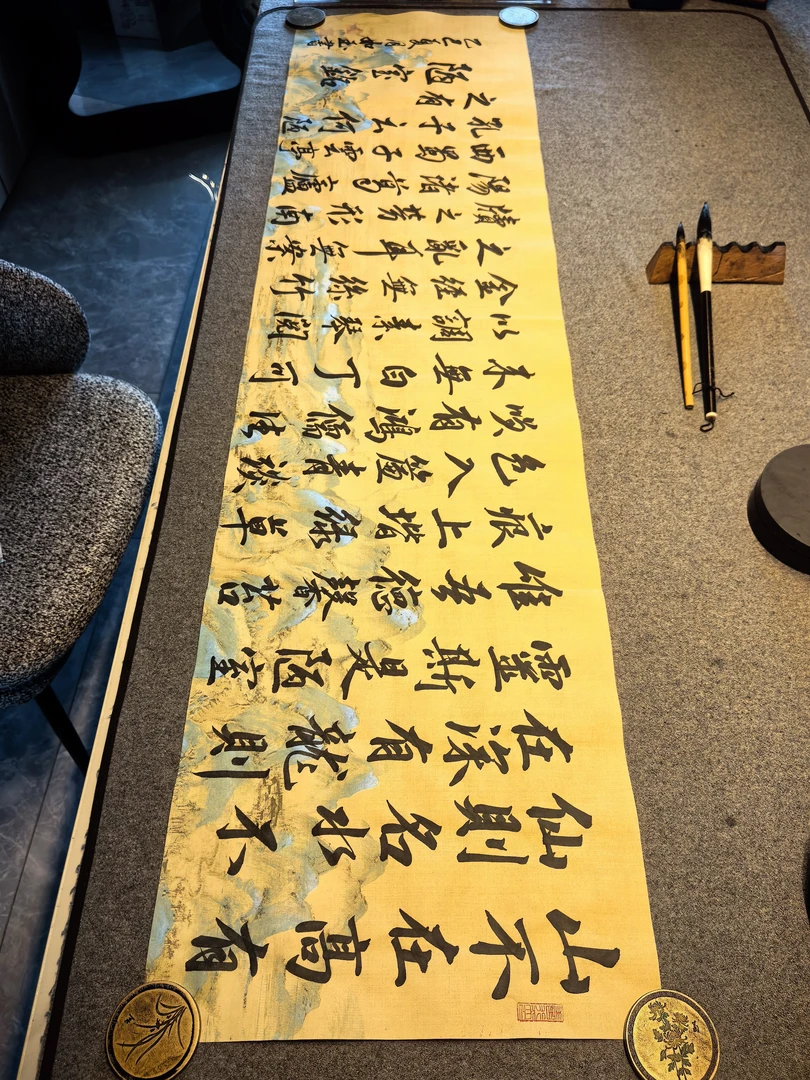 山不在高有
仙則名水不
在深有龍則
靈斯是陋室
惟吾德馨苔
痕上階綠草
色入簾青談
笑有鴻儒往
來無白丁可
以調素琴閱
金經無絲竹
之亂耳無案
牘之勞形南
陽諸葛廬
西蜀子雲亭
孔子云何陋
之有
陋室銘
乙巳夏月 書